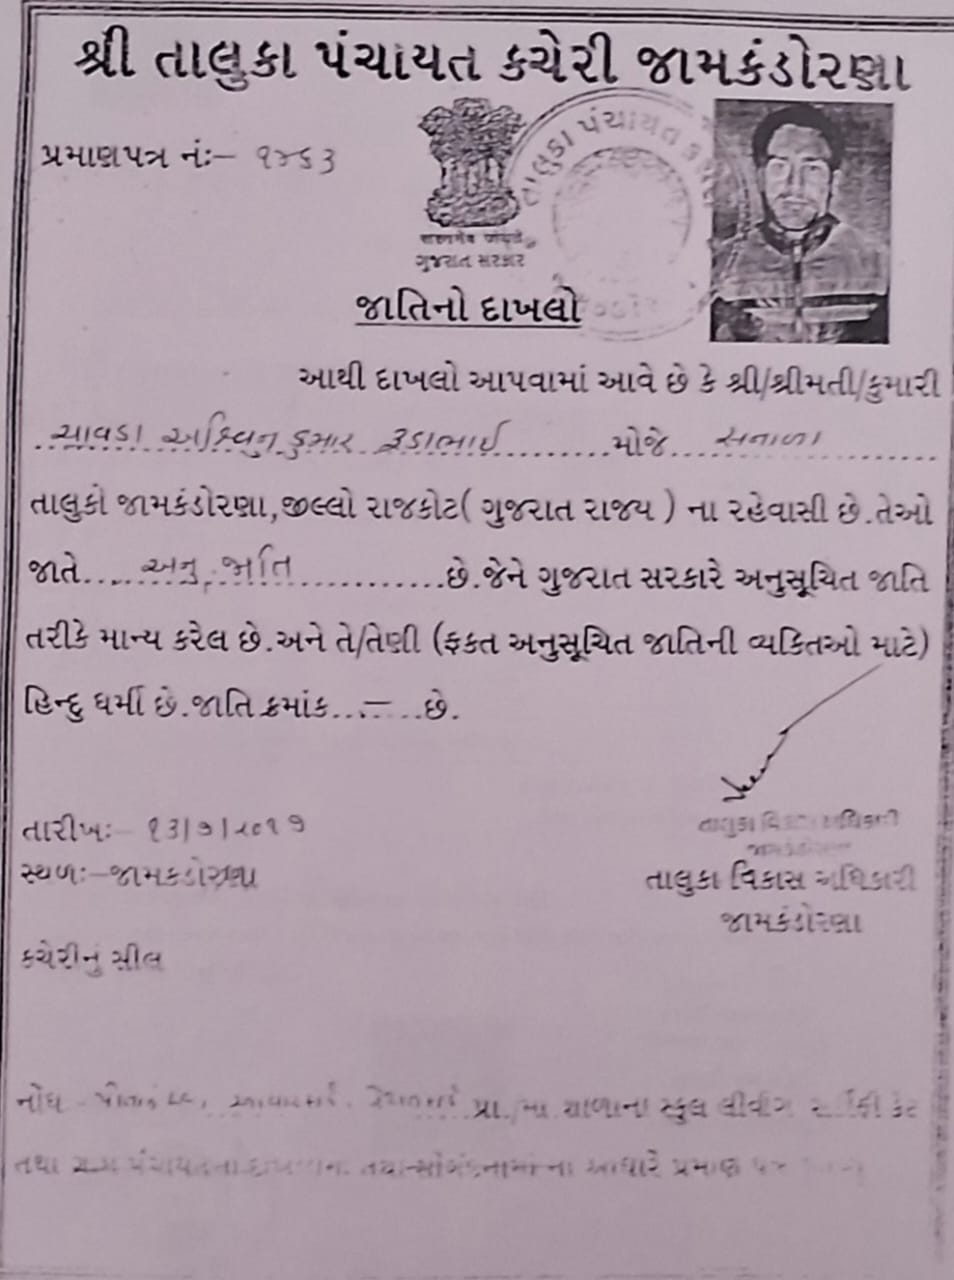 શ્રી તાલુકા પંચાયત કચેરી જામકંડોરણા
પ્રમાણપત્ર નંઃ– ૧૪૬૩
તાલુકા પંચાયત
ગુજરાત સરકાર
જાતિનો દાખલો
આથી દાખલો આપવામાં આવે છે કે શ્રી/શ્રીમતી/કુમારી
ચાવડા અશ્વિનકુમાર રૂડાભાઈ મોજે સનાળા
તાલુકો જામકંડોરણા,જીલ્લો રાજકોટ( ગુજરાત રાજ્ય ) ના રહેવાસી છે.તેઓ
જાતે..... અનુ. જાતિ ..............છે.જેને ગુજરાત સરકારે અનુસૂચિત જાતિ
તરીકે માન્ય કરેલ છે.અને તે/તેણી (ફકત અનુસૂચિત જાતિની વ્યકિતઓ માટે)
હિન્દુ ધર્મી છે.જાતિ ક્રમાંક...–.....છે.
તારીખઃ– ૧૩/૭/૨૦૧૭
સ્થળઃ–જામકડોરણા
તાલુકા વિકાસ અધિકારી
જામકંડોરણા
તાલુકા વિકાસ અધિકારી
જામકંડોરણા
કચેરીનું સીલ
નોંધ પ્રા./મા શાળાના સ્કુલ લીવીંગ
તથા આધારે પ્રમાણ